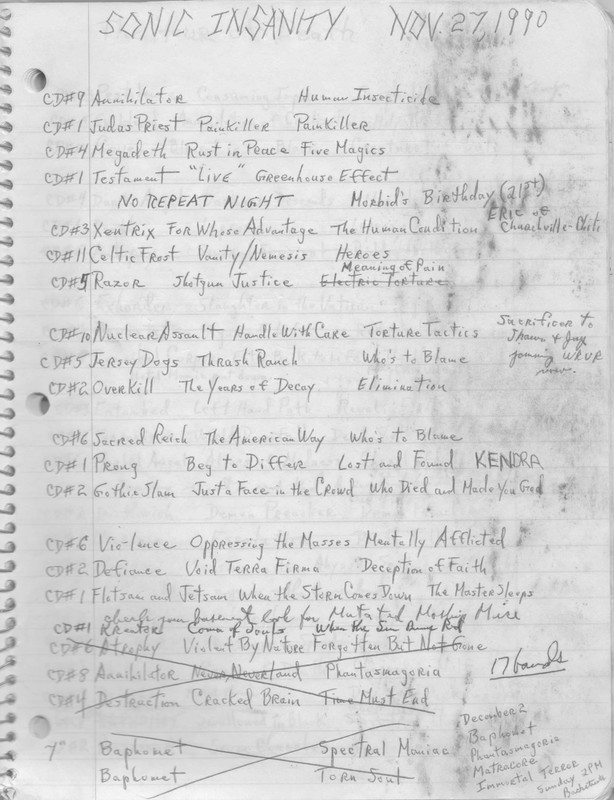 SONIC INSANITY NOV. 27, 1990
CD#9 Annihilator Human Insecticide
CD#1 Judas Priest Painkiller Painkiller
CD#4 Megadeth Rust in Peace Five Magics
CD#1 Testament "Live" Greenhouse Effect
NO REPEAT NIGHT Morbid's Birthday (21st)
CD#3 Xentrix For Whose Advantage The Human Condition ERIC of
CD#11 Celtic Frost Vanity/Nemesis Heroes
Meaning of Pain
CD#5 Razor Shotgun Justice Electric Torture
CD#10 Nuclear Assault Handle With Care Torture Tactics
Sacrificer to
Shawn + Jay
joining WRUR
now.
CD#5 Jersey Dogs Thrash Ranch Who's to Blame
CD#2 Overkill The Years of Decay Elimination
CD#6 Sacred Reich The American Way Who's to Blame
CD#1 Prong Beg to Differ Lost and Found KENDRA
CD#2 Gothic Slam Just a Face in the Crowd Who Died and Made You God
CD#6 Vio-lence Oppressing the Masses Mentally Afflicted
CD#2 Defiance Void Terra Firma Deception of Faith
CD#1 Flotsam and Jetsam When the Storm Comes Down The Master Sleeps
check your basement look for Mutated
CD#1 Kreator Coma of Souls When the Sun Burns Red
CD#6 Atrophy Violent By Nature Forgotten But Not Gone
CD#8 Annihilator Never, Neverland Phantasmagoria
17 bands
CD#4 Destruction Cracked Brain Time Must End
7" Baphomet Spectral Maniac
Baphomet Torn Soul
December 2
Baphomet
Phantasmagoria
Matracore
Immortal TERROR
Sunday 2PM